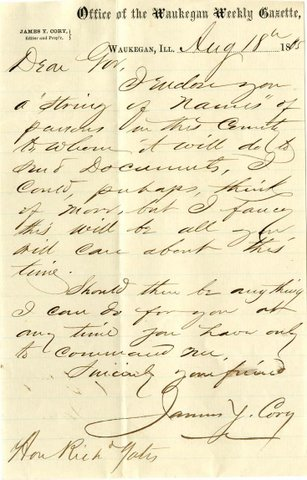 Office of the Waukegan Weekly Gazette,
JAMES Y. CORY,
Editor and Prop'r.
WAUKEGAN, ILL. Aug 18th 18
Dear Gov.
I enclose you
a "string of Names" of
persons in this County
to whom it will do to
send Documents, I
could, perhaps, think
of more, but I fancy
this will be all you
will care about this
time.
Should there be anything
I can do for you at
any time you have only
to command me,
Sincerely your friend
James Y. Cory
Hon Richd Yates